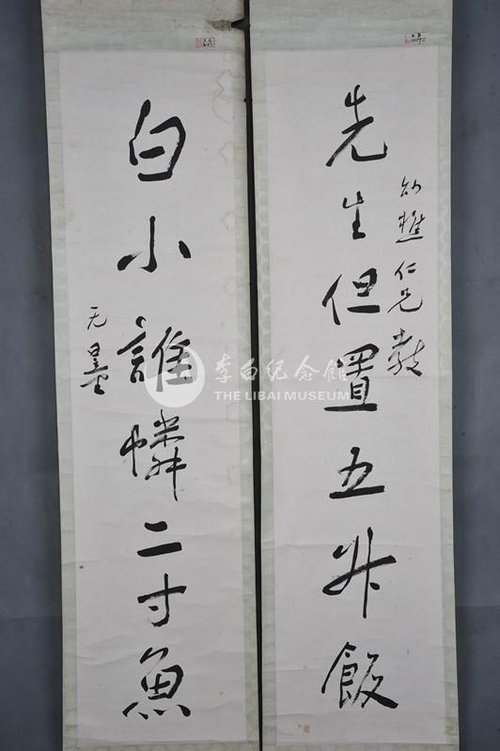 幼樵仁兄教
先生但置五升飯
白小誰憐二寸魚
无量
李白纪念館
THE LIBAI MUSEUM